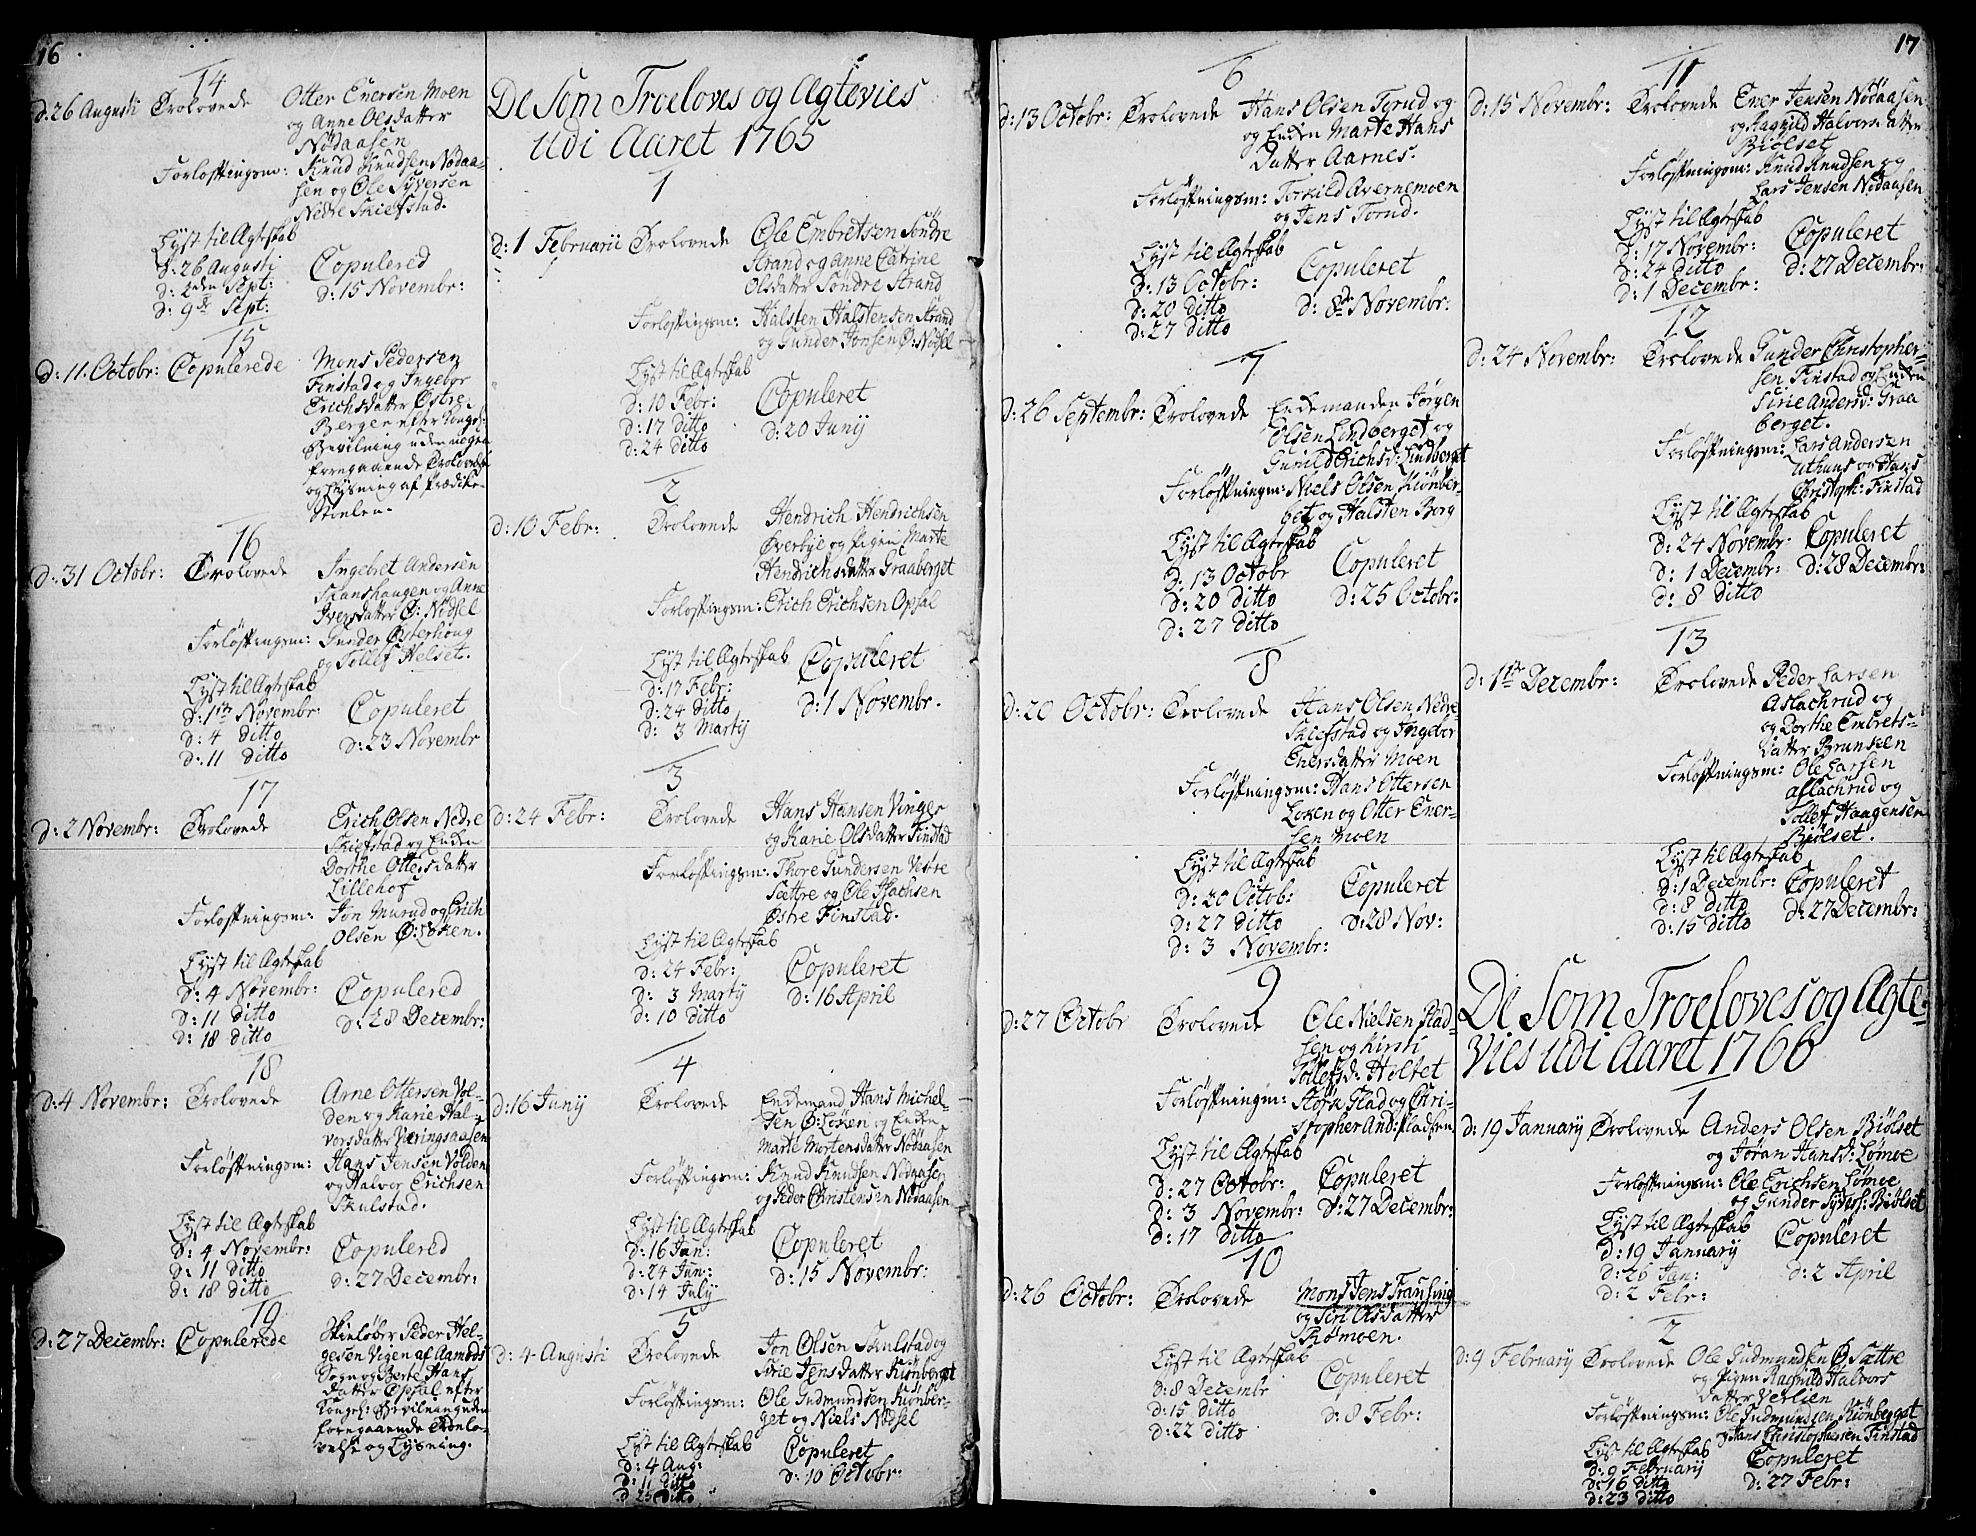 16
14
d: 26 Augusti Trolovede Otter Enersen Moen
og Anne Olsdatter
Nødaasen
Forløftningsm: Knud Knudsen Nødaa-
sen og Ole Syversen
Nedre Skiefstad.
Lyst til Ægteskab
d: 26 Augusti Copulered
d: 2den Sept: d: 15 Novembr:
d: 9de Sept:
15
d: 11. Octobr: Copulerede Mons Pedersen
Finstad og Ingebor
Erichsdatter Østre
Berger efter Kongel:
Bevilning uden nogen
foregaaende Trolovelse
og Lysning af Prædike-
Stoelen.
16
d: 31 Octobr: Trolovede Ingebret Andersen
Skanshaugen og Anne
Iversdatter Ø: Nødsel
Forløftningsm: Gunder Østerhoug
og Tollef Helset.
Lyst til Ægteskab
d: 1ste Novembr: Copuleret
d: 4 ditto d: 23 Novembr
d: 11 ditto
17
d: 2 Novembr: Trolovede Erich Olsen Nedre
Skiefstad og Enken
Dorthe Ottersdatter
Lillehof
Forløftningsm: Jon Marud og Erich
Olsen Ø: Løken.
Lyst til Ægteskab
d: 4 Novembr: Copulered
d: 11 ditto d: 28 Decembr:
d: 18 ditto
18
d: 4 Novembr: Trolovede Arne Ottersen Vol-
den og Karie Hal-
vorsdatter Væringsaasen
Forløftningsm: Hans Jensen Volden
og Halvor Erichsen
Skulstad.
Lyst til Ægteskab
d: 4 Novembr: Copulered
d: 11 ditto d: 27 Decembr:
d: 18 ditto
19
d: 27 Decembr: Copulerede Skieløber Peder Hel-
gesen Vigen af Aamods
Sogn og Berte Hans
datter Opsal efter
Kongel: Bevilning uden
foregaaende Trolo-
velse og Lysning.
De Som Troeloves og Ægtevies
udi Aaret 1765
1
d: 1 Februarii Trolovede Ole Embretsen Søndre
Strand og Anne Catrine
Olsdatter Søndre Strand
Forløftningsm: Halsten Halstensen Strand
og Gunder Jonsen Ø: Nødsel
Lyst til Ægteskab
d: 10 Febr: Copuleret
d: 17 ditto d: 20 Junij
d: 24 ditto
2
d: 10 Febr: Trolovede Hendrich Hendrichsen
Øverbye og Pigen Marte
Hendrichsdatter Graaberget
Forløftningsm: Erich Erichsen Opsal
Lyst til Ægteskab Copuleret
d: 17 Febr: d: 1 Novembr.
d: 24 ditto
d: 3 Martij
3
d: 24 Febr: Trolovede Hans Hansen Vinger
og Karie Olsdatter Finstad
Forløftningsm: Thore Gundersen Vestre
Sættre og Ole Isachsen
Østre Finstad.
Lyst til Ægteskab
d: 24 Febr: Copuleret
d: 3 Martij d: 16 April
d: 10 ditto
4
d: 16 Junij Trolovede Enkemand Hans Michel-
sen Ø: Løken og Enken
Marte Mortensdatter Nødaasen
Forløftningsm: Knud Knudsen Nødaasen
og Peder Christensen Nødaasen
Lyst til Ægteskab
d: 16 Jun: Copuleret
d: 24 Jun: d: 15 Novembr:
d: 14 July
5
d: 4 Augusti Trolovede Jon Olsen Skulstad og
Sirie Jensdatter Kiønberget
Forløftningsm: Ole Gudmundsen Kiønber-
get og Niels Nødsel
Lyst til Ægteskab Copuleret
d: 4 Aug: d: 10 Octobr:
d: 11 ditto
d: 25 ditto
17
6
d: 13 Octobr: Trolovede Hans Olsen Torud og
og Enken Marte Hans
Datter Aarnes.
Forløftningsm: Torkild Qvernemoen
og Jens Torud.
Lyst til Ægteskab
d: 13 Octobr: Copuleret
d: 20 ditto d: 8de Novembr:
d: 27 ditto
7
d: 26 Septembr: Trolovede Enkemanden Jørgen
Olsen Lindberget og
Gunild Erichsd: Lindberget
Forløftningm: Niels Olsen Kiønber-
get og Halsten Berg
Lyst til Ægteskab
d: 13 Octobr Copuleret
d: 20 ditto d: 25 Octobr:
d: 27 ditto
8
d: 20 Octobr: Trolovede Hans Olsen Nedre
Skiefstad og Ingebor
Enersdatter Moen
Forløftningsm: Hans Ottersen
Løken og Otter Ener-
sen Moen
Lyst til Ægteskab
d: 20 Octob: Copuleret
d: 27 ditto d: 28 Nov:
d: 3 Novembr:
9
d: 27 Octobr Trolovede Ole Nielsen Plad-
sen og Kirsti
Tollefsd: Holtet
Forløftningm: Størk Glad og Chri-
stopher And: Pladsen
Lyst til Ægteskab
d: 27 Octobr: Copuleret
d: 3 Novembr: d: 27 Decembr:
d: 17 ditto
10
d: 26 Octobr: Trolovede Monsr Jens Fransing
og Siri Olsdatter
Rømoen.
Lyst til Ægteskab
d: 8 Decembr Copuleret
d: 15 ditto d: 8 Febr:
d: 22 ditto
11
d: 15 Novembr: Trolovede Ener Jensen Nødaasen
og Ragnild Halvorsdatter
Biølset
Forløftningsm: Knud Knudsen og
Lars Jensen Nødaasen
Lyst til Ægteskab
d: 17 Novembr: Copuleret
d: 24 ditto d: 27 Decembr:
d: 1 Decembr:
12
d: 24 Novembr: Trolovede Gunder Christopher-
sen Finstad og Enken
Sirie Andersd: Graa
berget.
Forløftningsm: Lars Andersen
Uthuus og Hans
Christoph: Finstad
Lyst til Ægteskab
d: 24 Novembr. Copuleret
d: 1 Decembr: d: 28 Decembr:
d: 8 ditto
13
d: 1te Decembr: Trolovede Peder Larsen
Aslachrud og
og Dorthe Embrets-
datter Brunken
Forløftningsm: Ole Larsen
Aslachrud og
Tollef Haagensen
Biølset.
Lyst til Ægteskab
d: 1 Decembr: Copuleret
d: 8 ditto d: 27 Decembr:
d: 15 ditto
De Som Troeloves og Ægte-
vies udi Aaret 1766
1
d: 19 January Trolovede Anders Olsen Biølset
og Jøran Hansd: Lømoe
Forløftningsm: Ole Erichsen Lømoe
og Gunder Syvers: Biølset
Lyst til Ægteskab
d: 19 January Copuleret
d: 26 Jan: d: 2 April
d: 2 Febr:
2
d: 9 February Trolovede Ole Gudmundsen Ø Sættre
og Pigen Ragnild Halvors
Datter Verlien
Forløftningsm: Ole Gudmundsen Kiønberget
og Hans Christophersen Finstad
Lyst til Ægteskab Copuleret
d: 9 February d: 27 Febr:
d: 16 ditto
d: 23 ditto